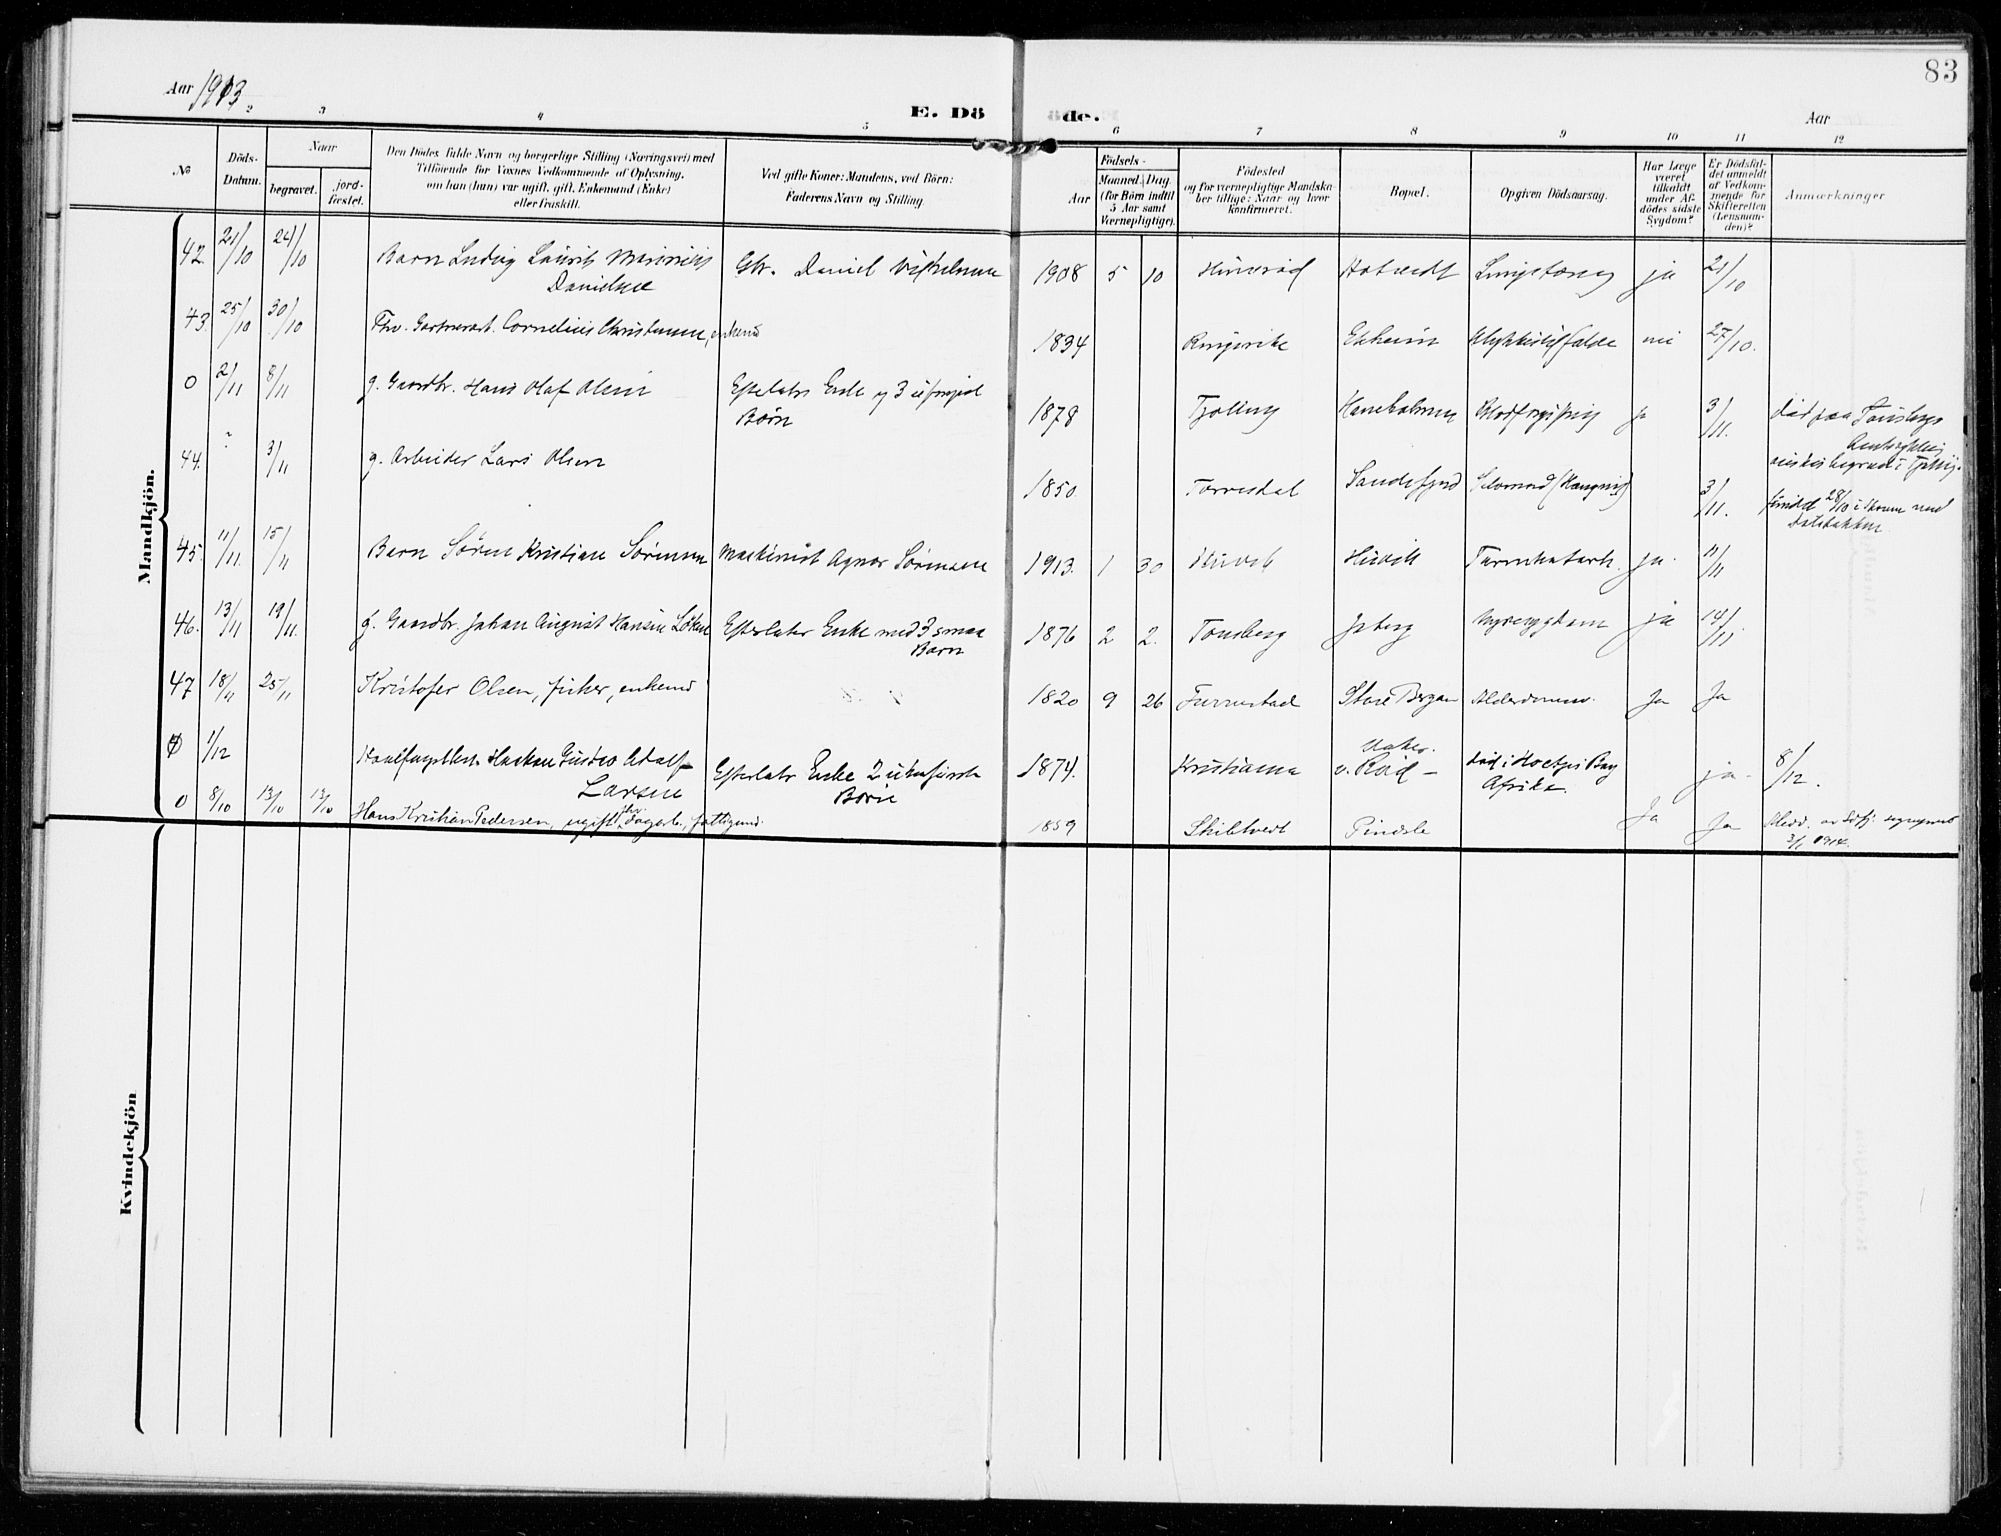 83
Aar 1913
E. Dö
de.
Aar
2 3 4 5 6 7 8 9 10 11 12
№
Döds-
Datum.
Naar
begravet.
jord-
fæstet.
Den Dödes fulde Navn og borgerlige Stilling (Næringsvei) med
Tilföiende for Voxnes Vedkommende af Oplysning,
om han (hun) var ugift, gift, Enkemand (Enke)
eller fraskilt.
Ved gifte Koner: Mandens, ved Börn:
Faderens Navn og Stilling.
Födsels-
Aar
Maaned. Dag.
(for Börn indtil
5 Aar samt
Værnepligtige).
Födested
og for værnepligtige Mandska-
ber tillige: Naar og hvor
konfirmeret.
Bopæl.
Opgiven Dödsaarsag.
Har Læge
været
tilkaldt
under Af-
dödes sidste
Sygdom?
Er Dödsfal-
det anmeldt
af Vedkom-
mende for
Skifteretten
(Lensman-
den)?
Anmærkninger
Mandkjön.
42. 21/10 24/10 Barn Ludvig Laurits Marinius Danielsen Gbr. Daniel 1908 5 10 Hotvedt ja 21/10
43. 25/10 30/10 Fhv. Cornelius Christensen, enkemd 1834 Ringerike Ekheim nei 27/10.
0 2/11 8/11 g. Gaardbr. Hans Olaf Olsen Efterlater Enke og 3 Børn 1878 Tjølling Blodforgiftning ja 3/11. død paa Tønsbergs
44. ? 3/11 g. Arbeider Lars Olsen 1850 Sandefjord Selvmord (Hængning) 3/11. 28/10 i
45. 11/11. 15/11 Barn Søren Kristian Sørensen Maskinist Agnar Sørensen 1913. 1 30 Tarmkatarh. ja. 11/11
46. 13/11 19/11. g. Gaardbr. Johan August Hansen Løken Efterlater Enke med 3 smaa Børn 1876 2 2. Tønsberg Nyresygdom ja 14/11.
47 18/11 25/11 Kristofer Olsen, fisker, enkemd 1820 9 26 Furustad Store Bergan Alderdomssv. Ja Ja
0 1/12 Gustav Adolf Larsen Efterlater Enke 2 Børn 1874. Kristiania død i Afrika. ja. 8/12.
0 8/10 13/10 13/10 Hans Kristian Pedersen, ugift fhv. dagarb., fattigund. 1859 Skiltvedt Pindsle Ja Ja Medd. av 3/1 1914.
Kvindekjön